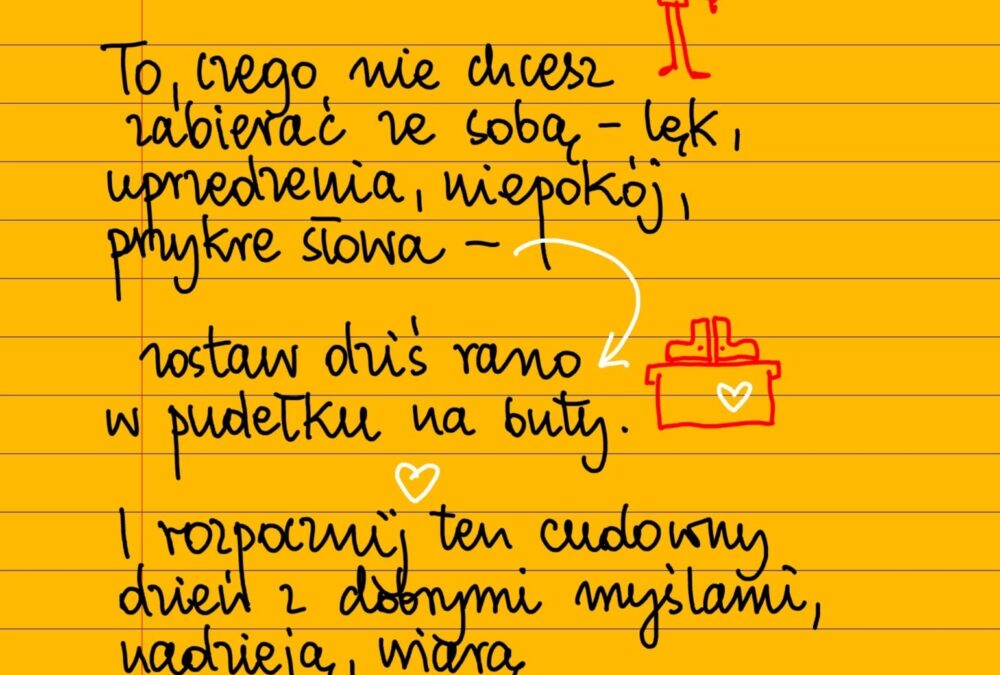 To, czego nie chcesz
zabierać ze sobą – lęk,
uprzedzenia, niepokój,
przykre słowa –
zostaw dziś rano
w pudełku na buty.
I rozpocznij ten cudowny
dzień z dobrymi myślami,
nadzieją, wiarą